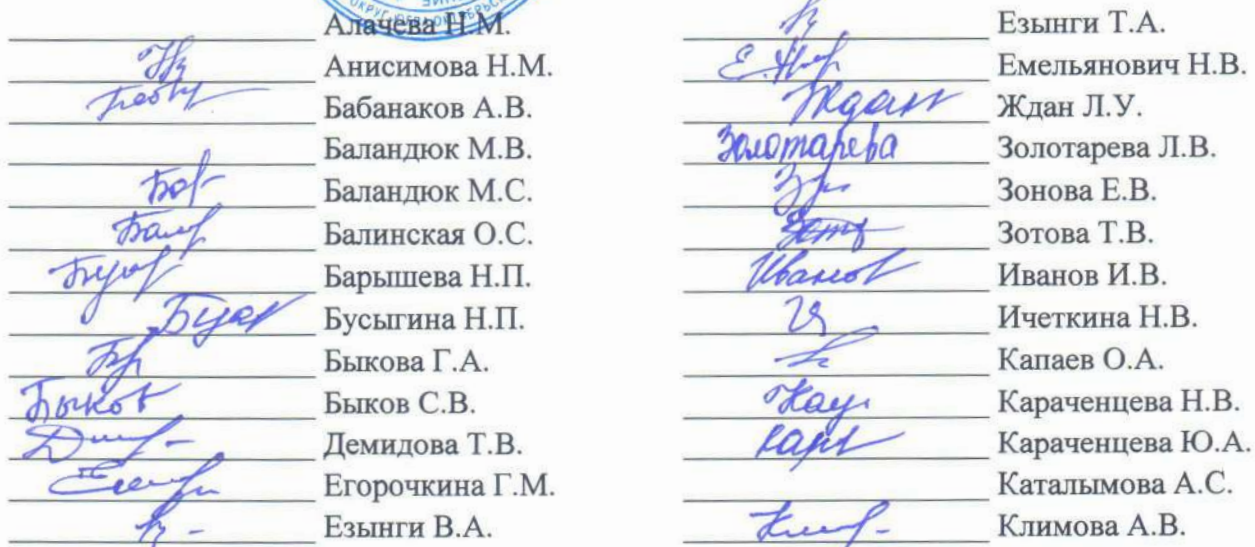 Алачева Н.М.
Анисимова Н.М.
Бабанаков А.В.
Баландюк М.В.
Баландюк М.С.
Балинская О.С.
Барышева Н.П.
Бусыгина Н.П.
Быкова Г.А.
Быков Быков С.В.
Демидова Т.В.
Егорочкина Г.М.
Езынги В.А.
Езынги Т.А.
Емельянович Н.В.
Ждан Ждан Л.У.
Золотарева Золотарева Л.В.
Зонова Е.В.
Зотова Т.В.
Иванов Иванов И.В.
Ичеткина Н.В.
Капаев О.А.
Караченцева Н.В.
Караченцева Ю.А.
Каталымова А.С.
Климова А.В.